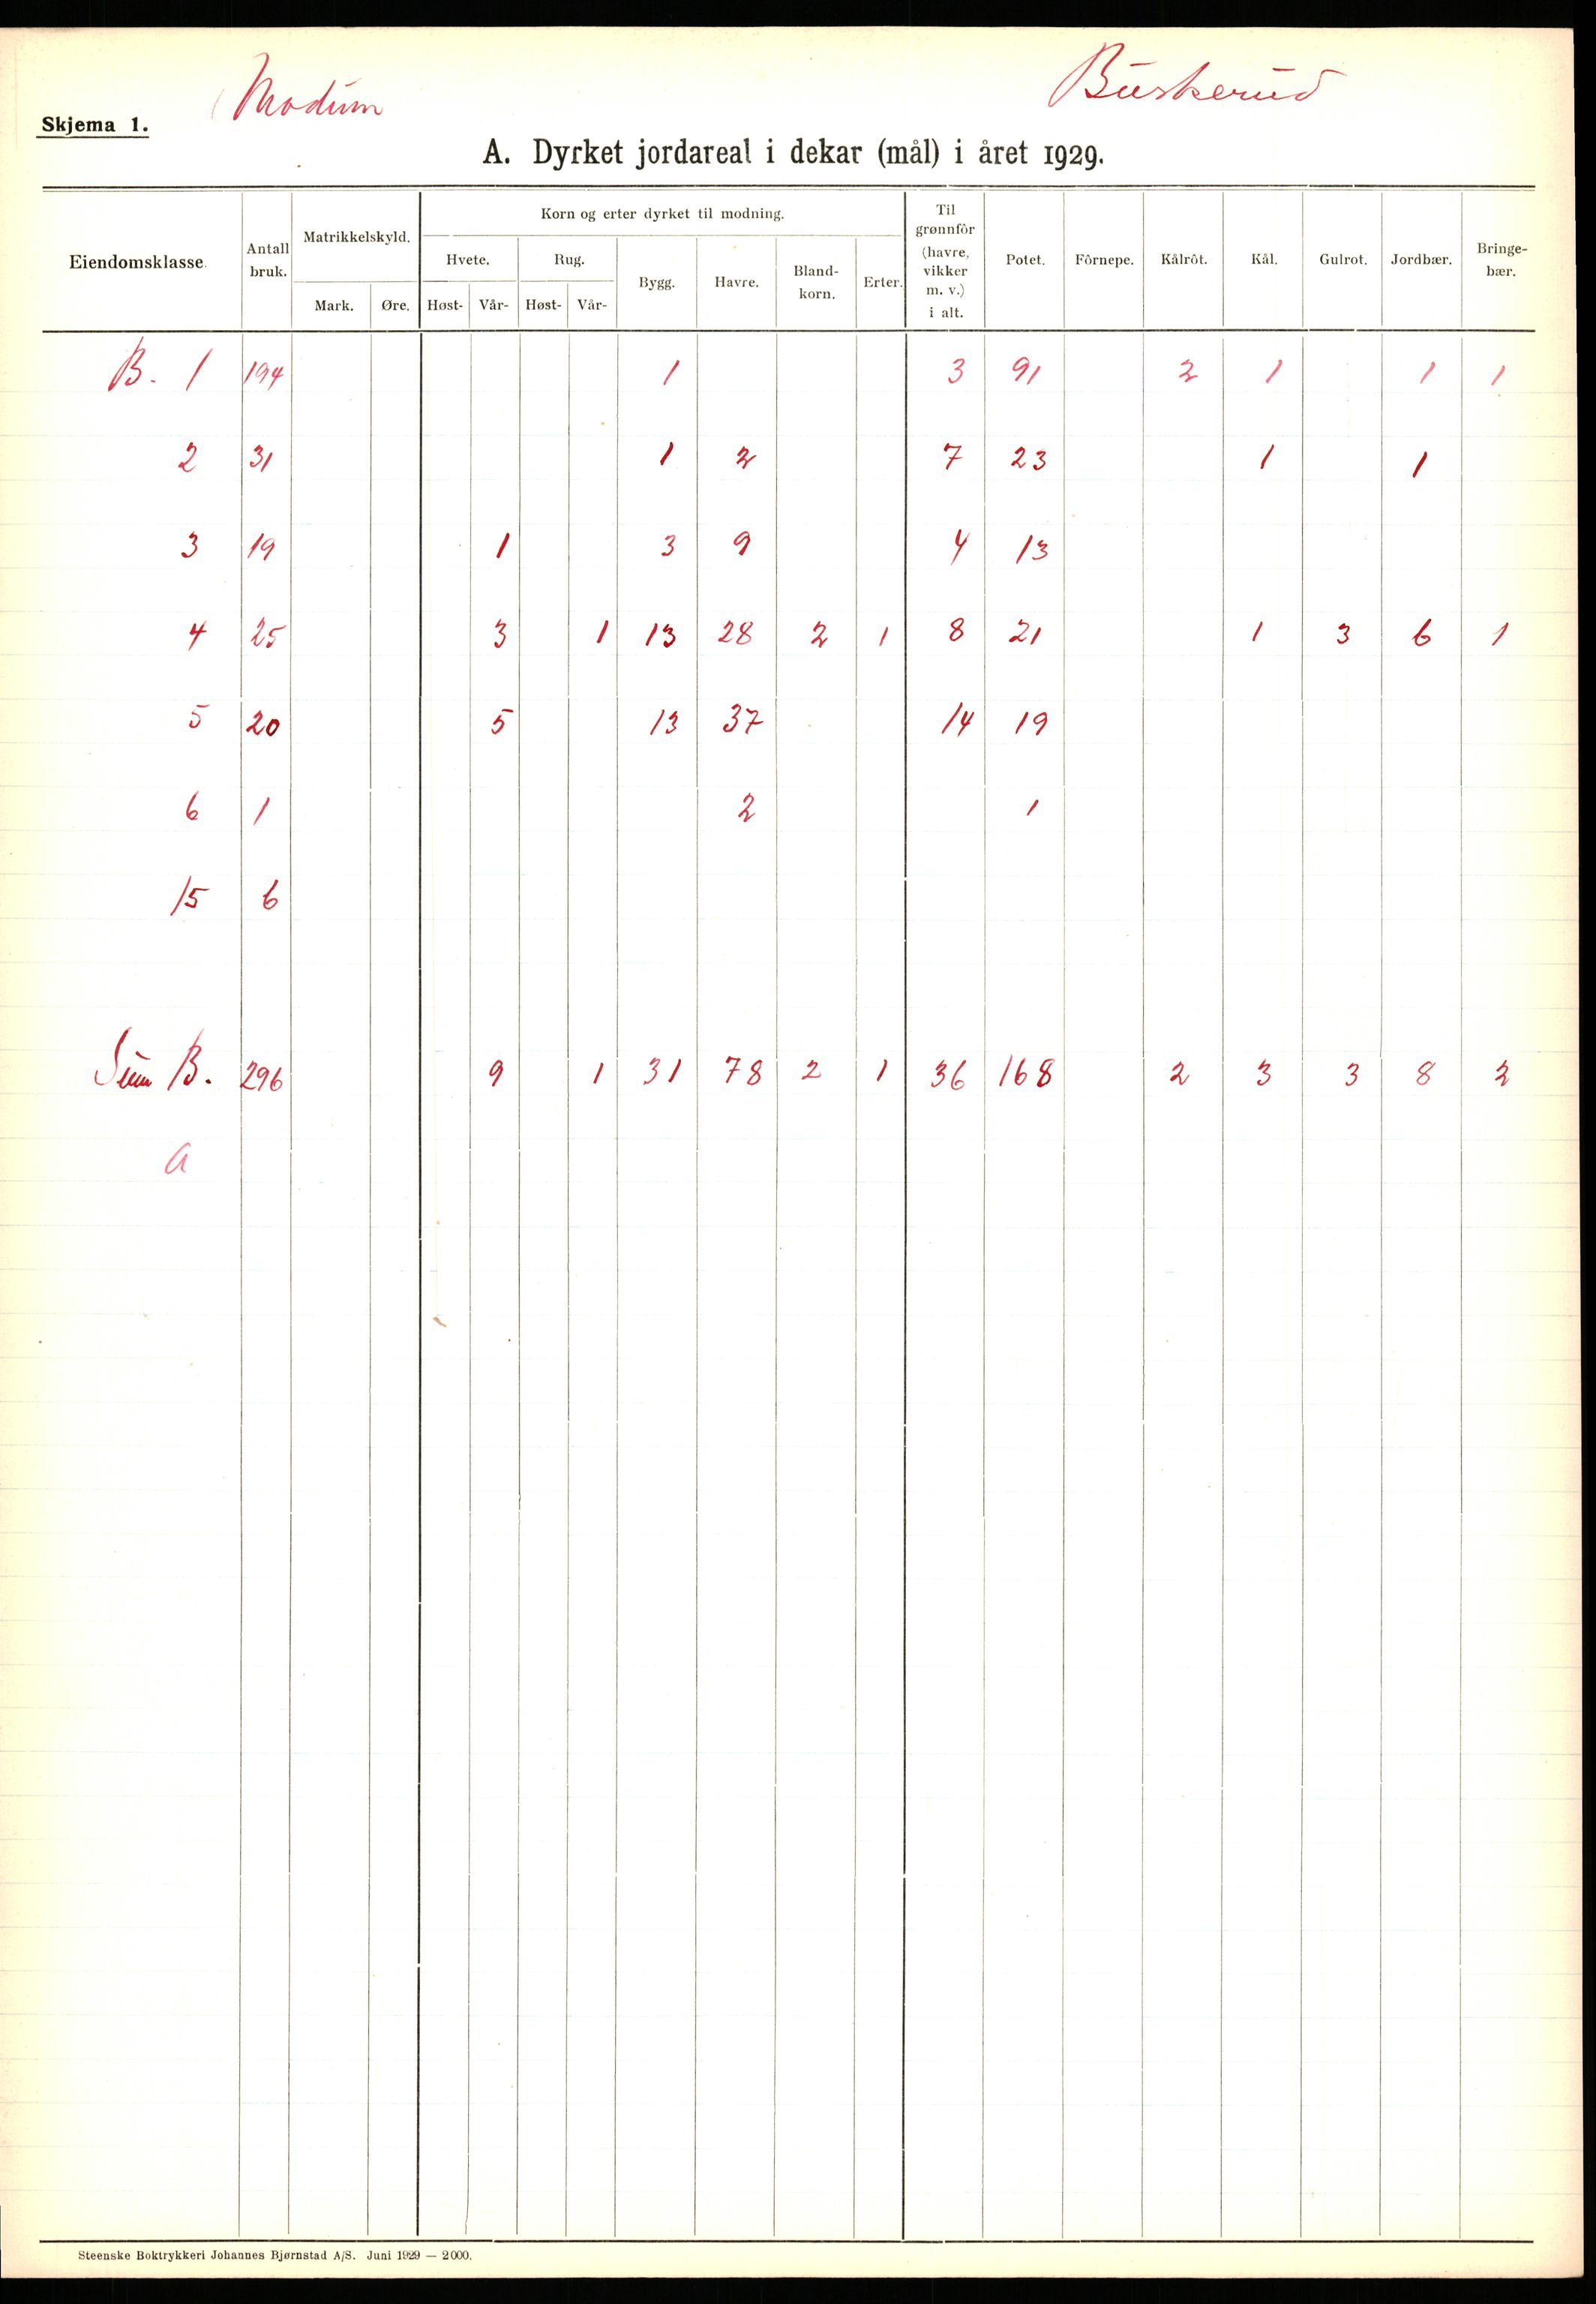 Modum Buskerud
Skjema 1.
A. Dyrket jordareal i dekar (mål) i året 1929.
Eiendomsklasse. Antall bruk. Matrikkelskyld. Korn og erter dyrket til modning. Til grønnfôr (havre, vikker m. v.) i alt. Potet. Fôrnepe. Kålrôt. Kål. Gulrot. Jordbær. Bringe-bær.
Hvete. Rug. Bygg. Havre. Bland-korn. Erter.
Mark. Øre. Høst- Vår- Høst- Vår-
B. 1 194 1 3 91 2 1 1 1
2 31 1 2 7 23 1 1
3 19 1 3 9 4 13
4 25 3 1 13 28 2 1 8 21 1 3 6 1
5 20 5 13 37 14 19
6 1 2 1
15 6
Sum B. 296 9 1 31 78 2 1 36 168 2 3 3 8 2
A
Steenske Boktrykkeri Johannes Bjørnstad A/S. Juni 1929 — 2000.